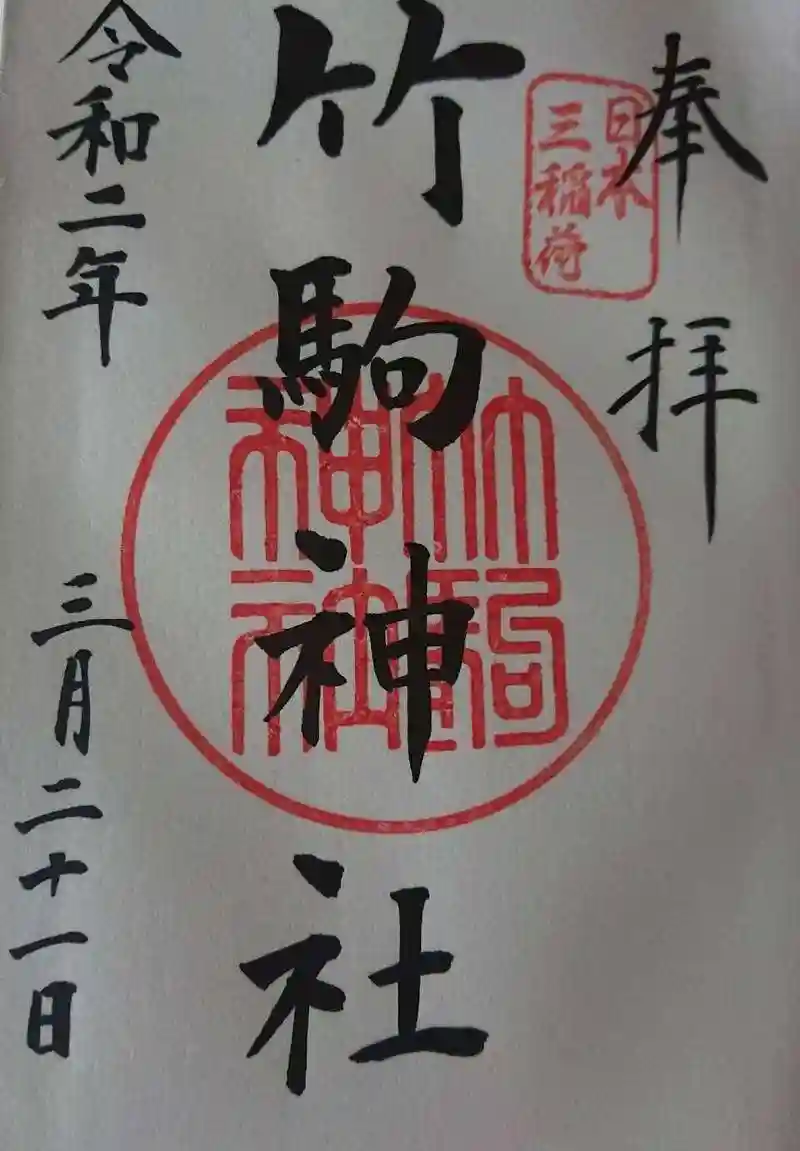 奉拝
日本
三稲荷
竹駒神社
竹駒
神社
令和二年
三月二十一日